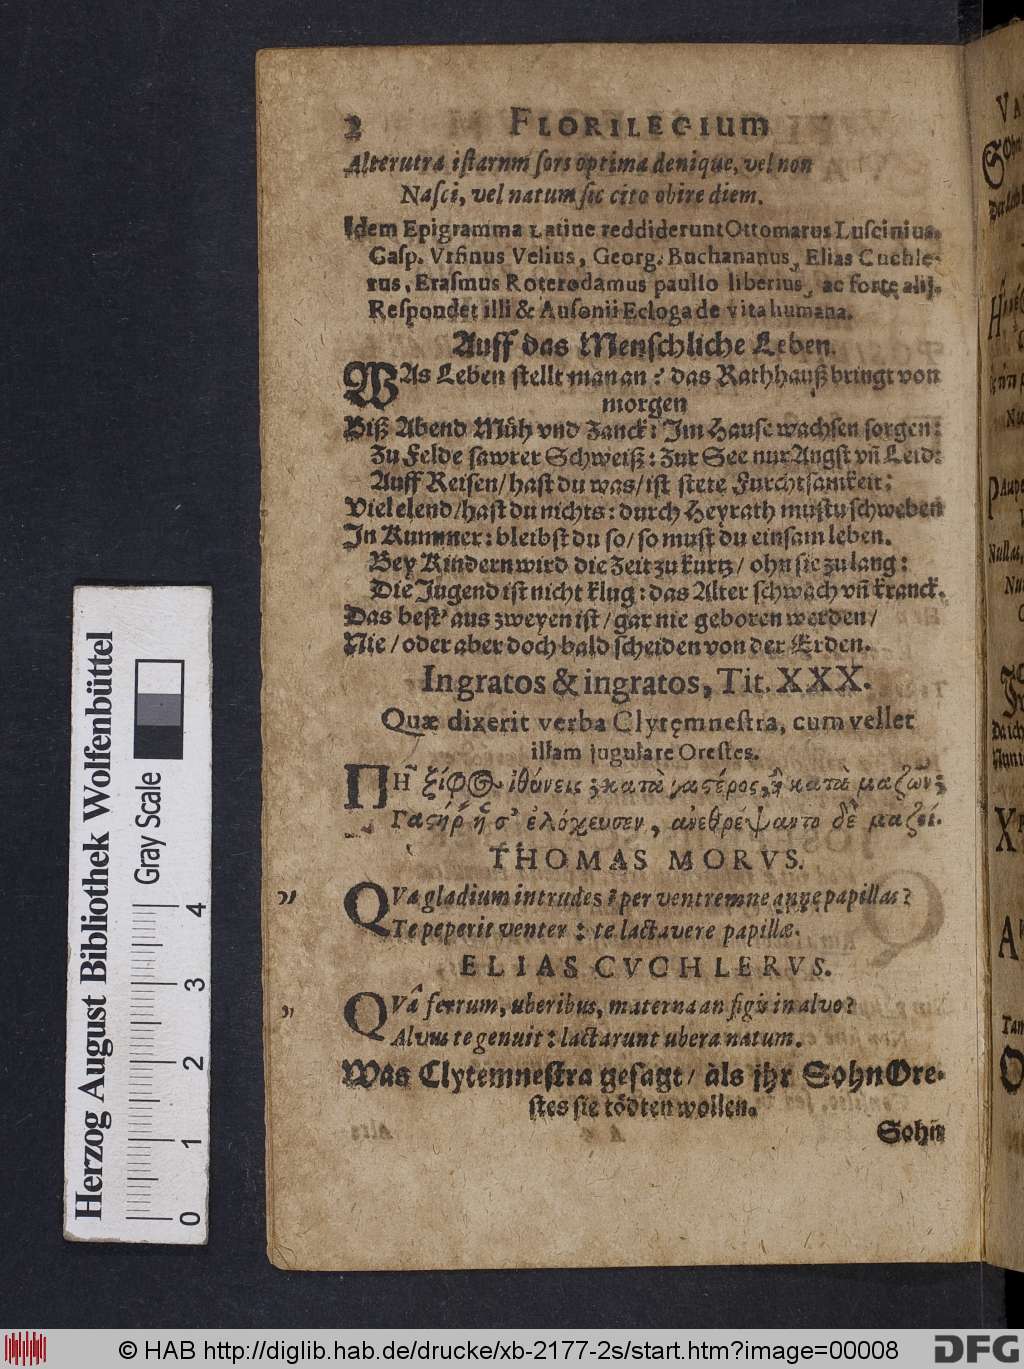 2 FLORILEGIUM
Alterutra istarnm sors optima denique, vel non
Nasci, vel natum sic cito obire diem.
Idem Epigramma Latine reddiderunt Ottomarus Luscinius,
Gasp. Vrsinus Velius, Georg. Buchananus, Elias Cuchle-
rus, Erasmus Roterodamus paullo liberius, ac forte alij.
Respondet illi & Ausonii Ecloga de vita humana.
Auff das Menschliche Leben.
WAs Leben stellt man an? das Rathhauß bringt von
morgen
Biß Abend Müh vnd Zanck: Im Hause wachsen sorgen:
Zu Felde sawrer Schweiß: Zur See nur Angst vñ Leid:
Auff Reisen/ hast du was/ ist stete Furchtsamkeit:
Viel elend/ hast du nichts: durch Heyrath mustu schweben
In Kummer: bleibst du so/ so must du einsam leben.
Bey Kindern wird die Zeit zu kurtz/ ohn sie zu lang:
Die Jugend ist nicht klug: das Alter schwach vñ kranck.
Das best' aus zweyen ist/ gar nie geboren werden/
Nie/ oder aber doch bald scheiden von der Erden.
Ingratos & ingratos, Tit. XXX.
Quæ dixerit verba Clytęmnestra, cum vellet
illam jugulare Orestes.
ΠΗ͂ ξίφος ἰθύνεις; κατὰ γαςέρος, ἢ κατὰ μαζῶν;
Γαςήρ ἥ σ' ἐλόχευσεν, ἀνεθρέψαντο δὲ μαζοί.
THOMAS MORVS.
QVa gladium intrudes? per ventremne anne papillas?
Te peperit venter: te lactavere papillæ.
ELIAS CVCHLERVS.
QVâ ferrum, uberibus, materna an figis in alvo?
Alvus te genuit: lactarunt ubera natum.
Was Clytemnestra gesagt/ als jhr Sohn Ore-
stes sie tödten wollen.
Sohn
Herzog August Bibliothek Wolfenbüttel
Gray Scale
0 1 2 3 4
© HAB http://diglib.hab.de/drucke/xb-2177-2s/start.htm?image=00008
DFG